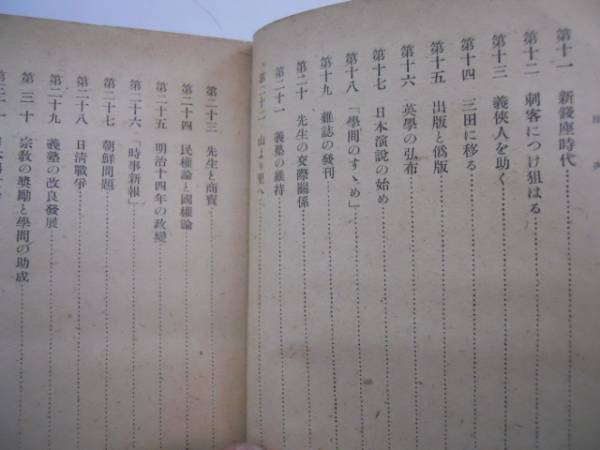 第十一　新錢座時代
第十二　刺客につけ狙はる
第十三　義俠人を助く
第十四　三田に移る
第十五　出版と僞版
第十六　英學の弘布
第十七　日本演說の始め
第十八　「學問のすゝめ」
第十九　雜誌の發刊
第二十　先生の交際關係
第二十一　義塾の維持
第二十二　山より里へ
第二十三　先生と商賣
第二十四　民權論と國權論
第二十五　明治十四年の政變
第二十六　「時事新報」
第二十七　朝鮮問題
第二十八　日淸戰爭
第二十九　義塾の改良發展
第三十　宗敎の奬勵と學問の助成
第三十一